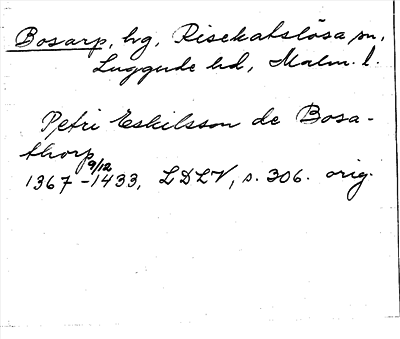 Bosarp, hg, Risekatslösa sn,
Luggude hd, Malm. l.
Petri Eskilsson de Bosa-
thorp
9/12
1367-1433, LDLV, s. 306. orig.